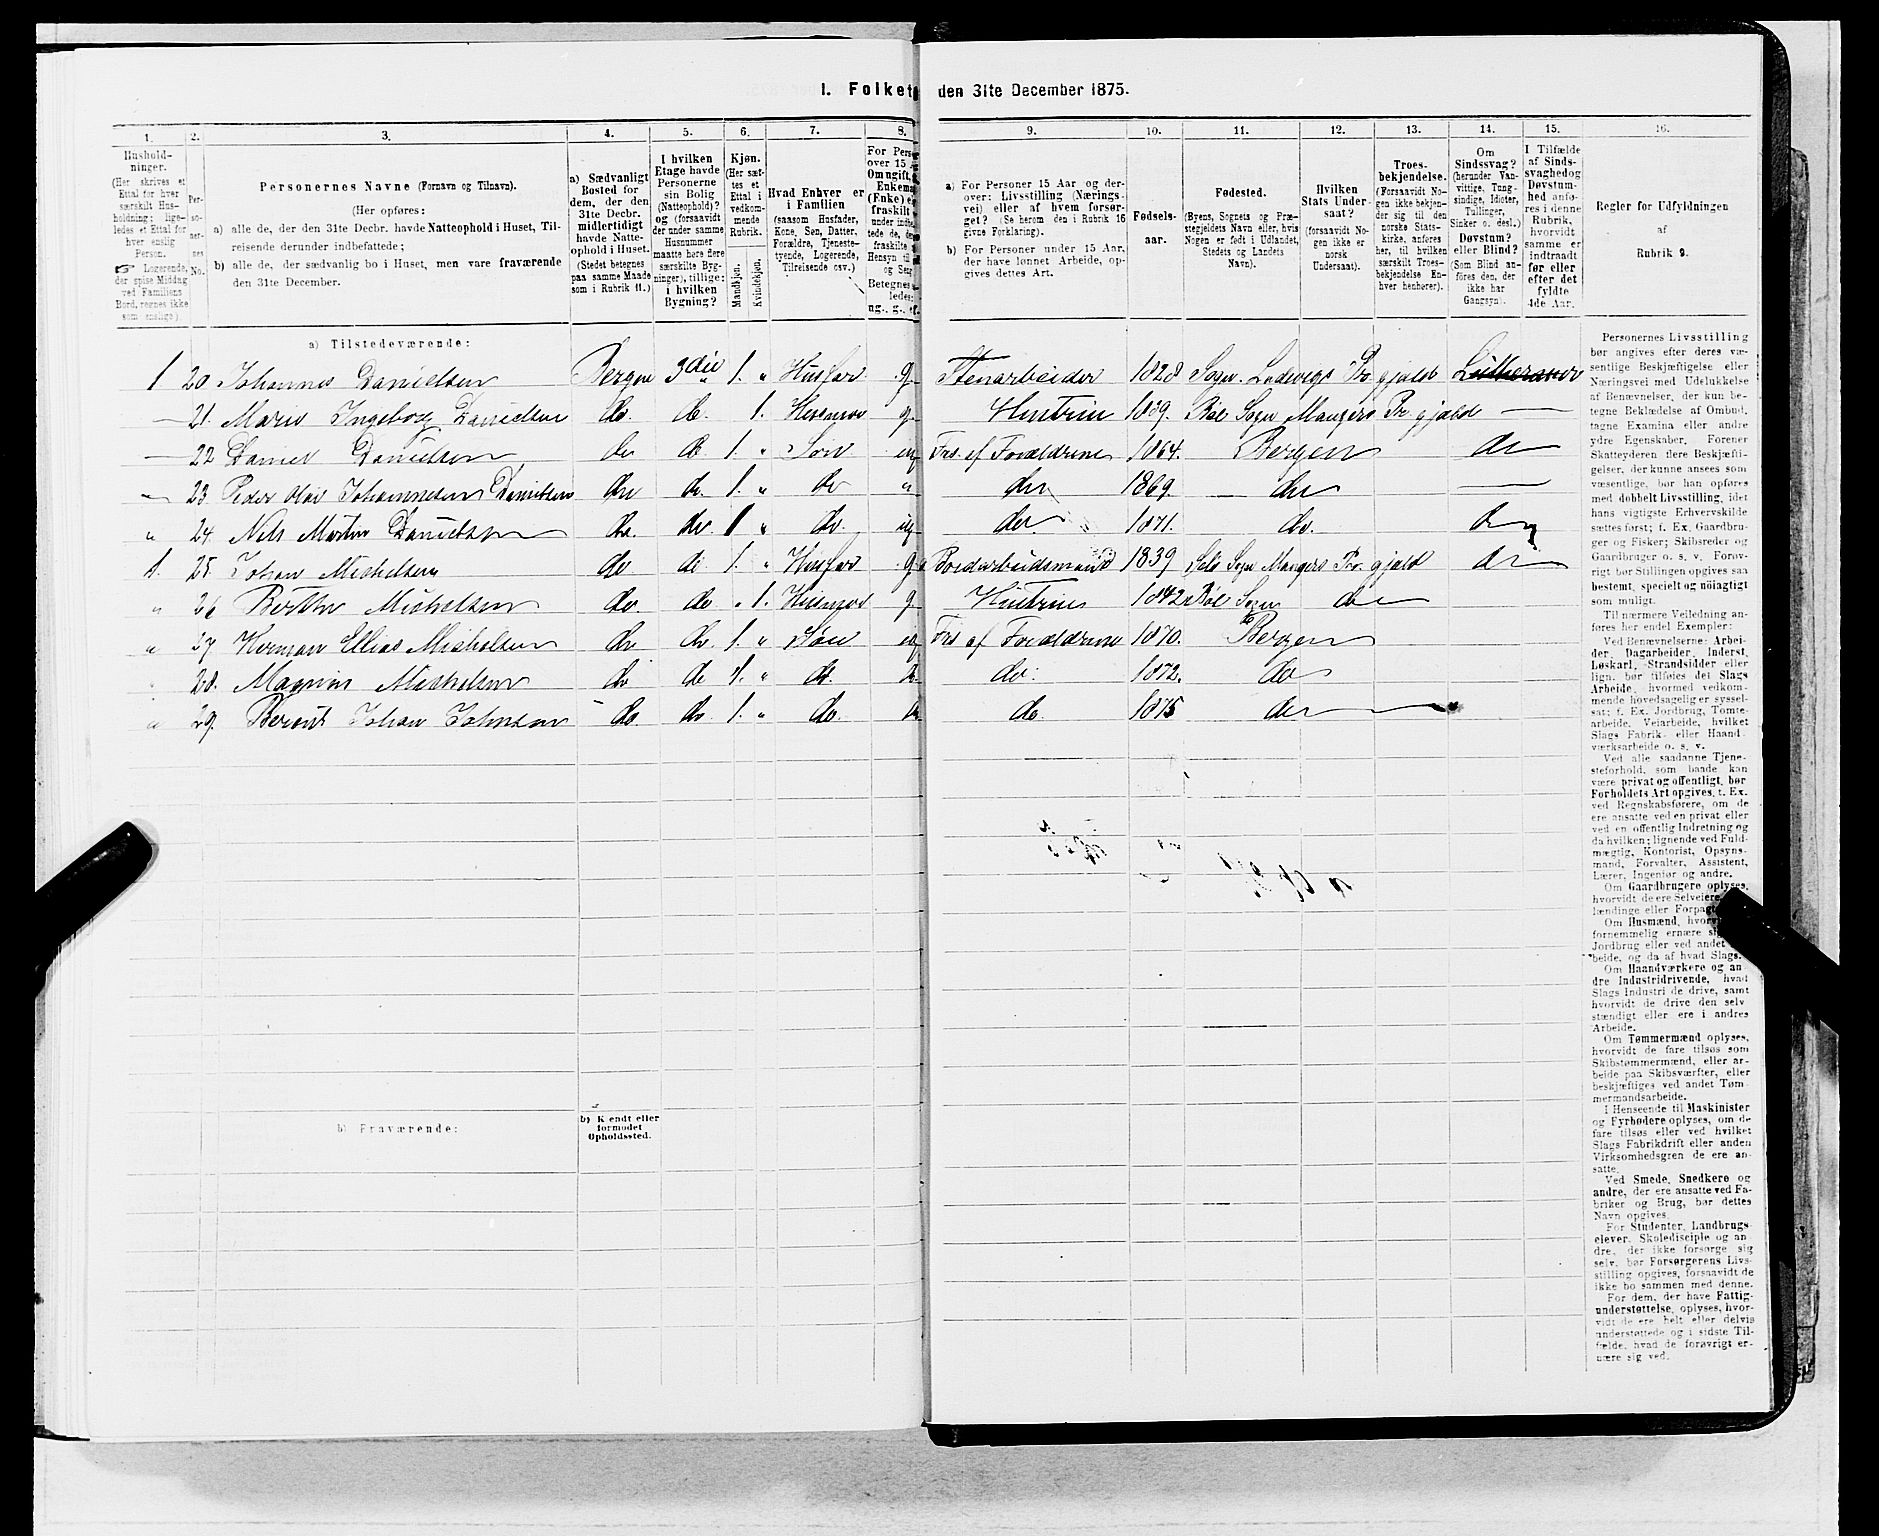 I. Folket den 31te December 1875.
1. 2. 3. 4. 5. 6. 7. 8. 9. 10. 11. 12. 13. 14. 15. 16.
Hushold-
ninger.
(Her skrives et
Ettal for hver
særskilt Hus-
holdning; lige-
ledes et Ettal for
hver enslig
Person.
☞ Logerende,
der spise Middag
ved Familiens
Bord, regnes ikke
som enslige).
Per-
so-
ner-
nes
No.
Personernes Navne (Fornavn og Tilnavn).
(Her opføres:
a) alle de, der den 31te Decbr. havde Natteophold i Huset, Til-
reisende derunder indbefattede;
b) alle de, der sædvanlig bo i Huset, men vare fraværende
den 31te December.
a) Sædvanligt
Bosted for
dem, der den
31te Decbr.
midlertidigt
havde Natte-
ophold i Huset.
(Stedet betegnes
paa samme Maade
som i Rubrik 11.)
I hvilken
Etage havde
Personerne
sin Bolig
(Natteophold)?
og (forsaavidt
der under samme
Husnummer
maatte høre flere
særskilte Byg-
ninger), tillige:
i hvilken
Bygning?
Kjøn.
(Her sæt-
tes et
Ettal i
vedkom-
mende
Rubrik.
Mandkjøn.
Kvindekjøn.
Hvad Enhver er
i Familien
(saasom Husfader,
Kone, Søn, Datter,
Forældre, Tjeneste-
tyende, Logerende,
Tilreisende osv.)
For Pers
over 15
Om ugift,
Enkema
(Enke) e
fraskilt
under indbe
tede de, de
fraskilte
Hensyn til
og Seng
Betegnes
ledes:
ug., g., e
a) For Personer 15 Aar og der-
over: Livsstilling (Nærings-
vei) eller af hvem forsør-
get? (Se herom den i Rubrik 16
givne Forklaring).
b) For Personer under 15 Aar,
der have lønnet Arbeide, op-
gives dettes Art.
Fødsels-
aar.
Fødested.
(Byens, Sognets og Præ-
stegjeldets Navn eller, hvis
Nogen er født i Udlandet,
Stedets og Landets
Navn).
Hvilken
Stats Under-
saat?
(forsaavidt No-
gen ikke er
norsk
Undersaat).
Troes-
bekjendelse.
(Forsaavidt No-
gen ikke bekjen-
der sig til den
norske Stats-
kirke, anføres
her, til hvilken
særskilt Troes-
bekjendelse En-
hver henhører).
Om
Sindssvag?
(herunder Van-
vittige, Tung-
sindige, Idioter,
Tullinger,
Sinker o. desl.)
Døvstum?
eller Blind?
(Som Blind an-
føres den, der
ikke har
Gangsyn).
I Tilfælde
af Sinds-
svaghed og
Døvstum-
hed anfø-
res i denne
Rubrik,
hvorvidt
samme er
indtraadt
før eller
efter det
fyldte
4de Aar.
Regler for Udfyldningen
af
Rubrik 9.
a) Tilstedeværende:
1 20 Johannes Danielsen Bergen 3die 1. " Husfar g Stenarbeider 1828 Sogn Ladvigs Pr. gjeld Lutheraner
— 21. Marie Ingeborg Danielsen do. do. 1. Husmor g Hustru 1829. Bøe Sogn Mangers Pr. gjæld —
— 22 Daniel Danielsen do do 1. " Søn ug Frs. af Forældrene 1864. Bergen do
— 23 Peder Olai Johannesen Danielsen do do. 1. " do " do 1869. do —
" 24. Nils Martin Danielsen do. do. 1 " do. ug do. 1871. do. do
1. 25. Johan Michelsen do do 1. " Husfar g Jordarbeidsmand 1839 Sele Sogn Mangers Pr. gjæld do
" 26 Berthe Michelsen do do " 1. Husmor g Hustru 1842 Bøe Sogn do
" 27 Herman Ellias Michelsen do do 1. " Søn ug Frs af Forældrene 1870. Bergen
" 28. Magnus Michelsen do do 1. " do. do do. 1872. do
" 29. Berent Johan Johnsen do. do. 1. " do. do do. 1875 do
b) Fraværende:
b) Kjendt eller
formodet
Opholdssted.
Personernes Livsstilling
bør angives efter deres væ-
sentlige Beskjæftigelse eller
Næringsvei med Udelukkelse
af Benævnelser, der kun be-
tegne Beklædelse af Ombud,
tagne Examina eller andre
ydre Egenskaber. Forener
Skatteyderen flere Beskjæfti-
gelser, der kunne ansees som
væsentlige, bør han opføres
med dobbelt Livsstilling, idet
hans vigtigste Erhvervskilde
sættes først; f. Ex. Gaardbru-
ger og Fisker; Skibsreder og
Gaardbruger o. s. v. Forøv-
rigt bør Stillingen opgives saa
bestemt, specielt og nøiagtigt
som muligt.
Til nærmere Veiledning an-
føres her endel Exempler:
Ved Benævnelserne: Arbei-
der, Dagarbeider, Inderst,
Løskarl, Strandsidder eller
lign. bør tilføies det Slags
Arbeide, hvormed vedkom-
mende hovedsagelig er syssel-
sat; f. Ex. Jordbrug, Tomte-
arbeide, Veiarbeide, hvilket
Slags Fabrik- eller Haand-
værksarbeide o. s. v.
Ved alle saadanne Tjene-
steforhold, som baade kan
være privat og offentligt, bør
Forholdets Art opgives, t. Ex.
ved Regnskabsførere, om de
ere ansatte ved en privat eller
ved en offentlig Indretning og
da hvilken; lignende ved Fuld-
mægtig, Kontorist, Opsyns-
mand, Forvalter, Assistent,
Lærer, Ingeniør og andre.
Om Gaardbrugere oplyses,
hvorvidt de ere Selveiere,
lændinge eller Forpag
Om Husmænd, hvor
fornemmelig ernære si
Jordbrug eller ved andet
beide, og da af hvad Slags.
Om Haandværkere og an-
dre Industridrivende, hvad
Slags Industri de drive, samt
hvorvidt de drive den selv-
stændigt eller ere i andres
Arbeide.
Om Tømmermænd oplyses,
hvorvidt de fare tilsøs som
Skibstømmermænd, eller ar-
beide paa Skibsværfter, eller
beskjæftiges ved andet Tøm-
mermandsarbeide.
I Henseende til Maskinister
og Fyrbødere oplyses, om de
fare tilsøs eller ved hvilket
Slags Fabrikdrift eller anden
Virksomhedsgren de ere an-
satte.
Ved Smede, Snedkere og
andre, der ere ansatte ved Fa-
briker og Brug, bør dettes
Navn opgives
For Studenter, Landbrugs-
elever, Skoledisciple og an-
dre, der ikke forsørge sig
selv, bør Forsørgerens Livs-
stilling opgives, forsaavidt de
ikke bo sammen med denne.
For dem, der have Fattig-
understøttelse, oplyses, hvor-
vidt de ere helt eller delvis
understøttede og i sidste Til-
fælde, hvad de forøvrigt er-
nære sig ved.